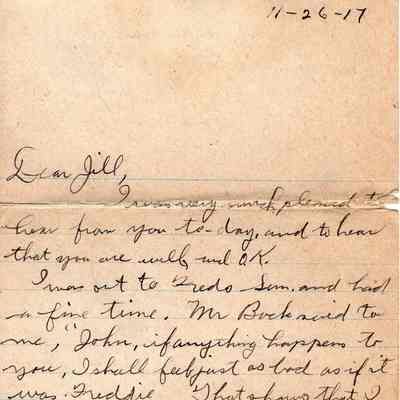 11-26-17
Dear Jill,
I was very much pleased to
hear from you to-day, and to hear
that you are well, and O.K.
I was out to Fredo Sun. and had
a fine time. Mr Bock said to
me, "John, if anything happens to
you, I shall feel just as bad as if it
was Freddie. That shows that I